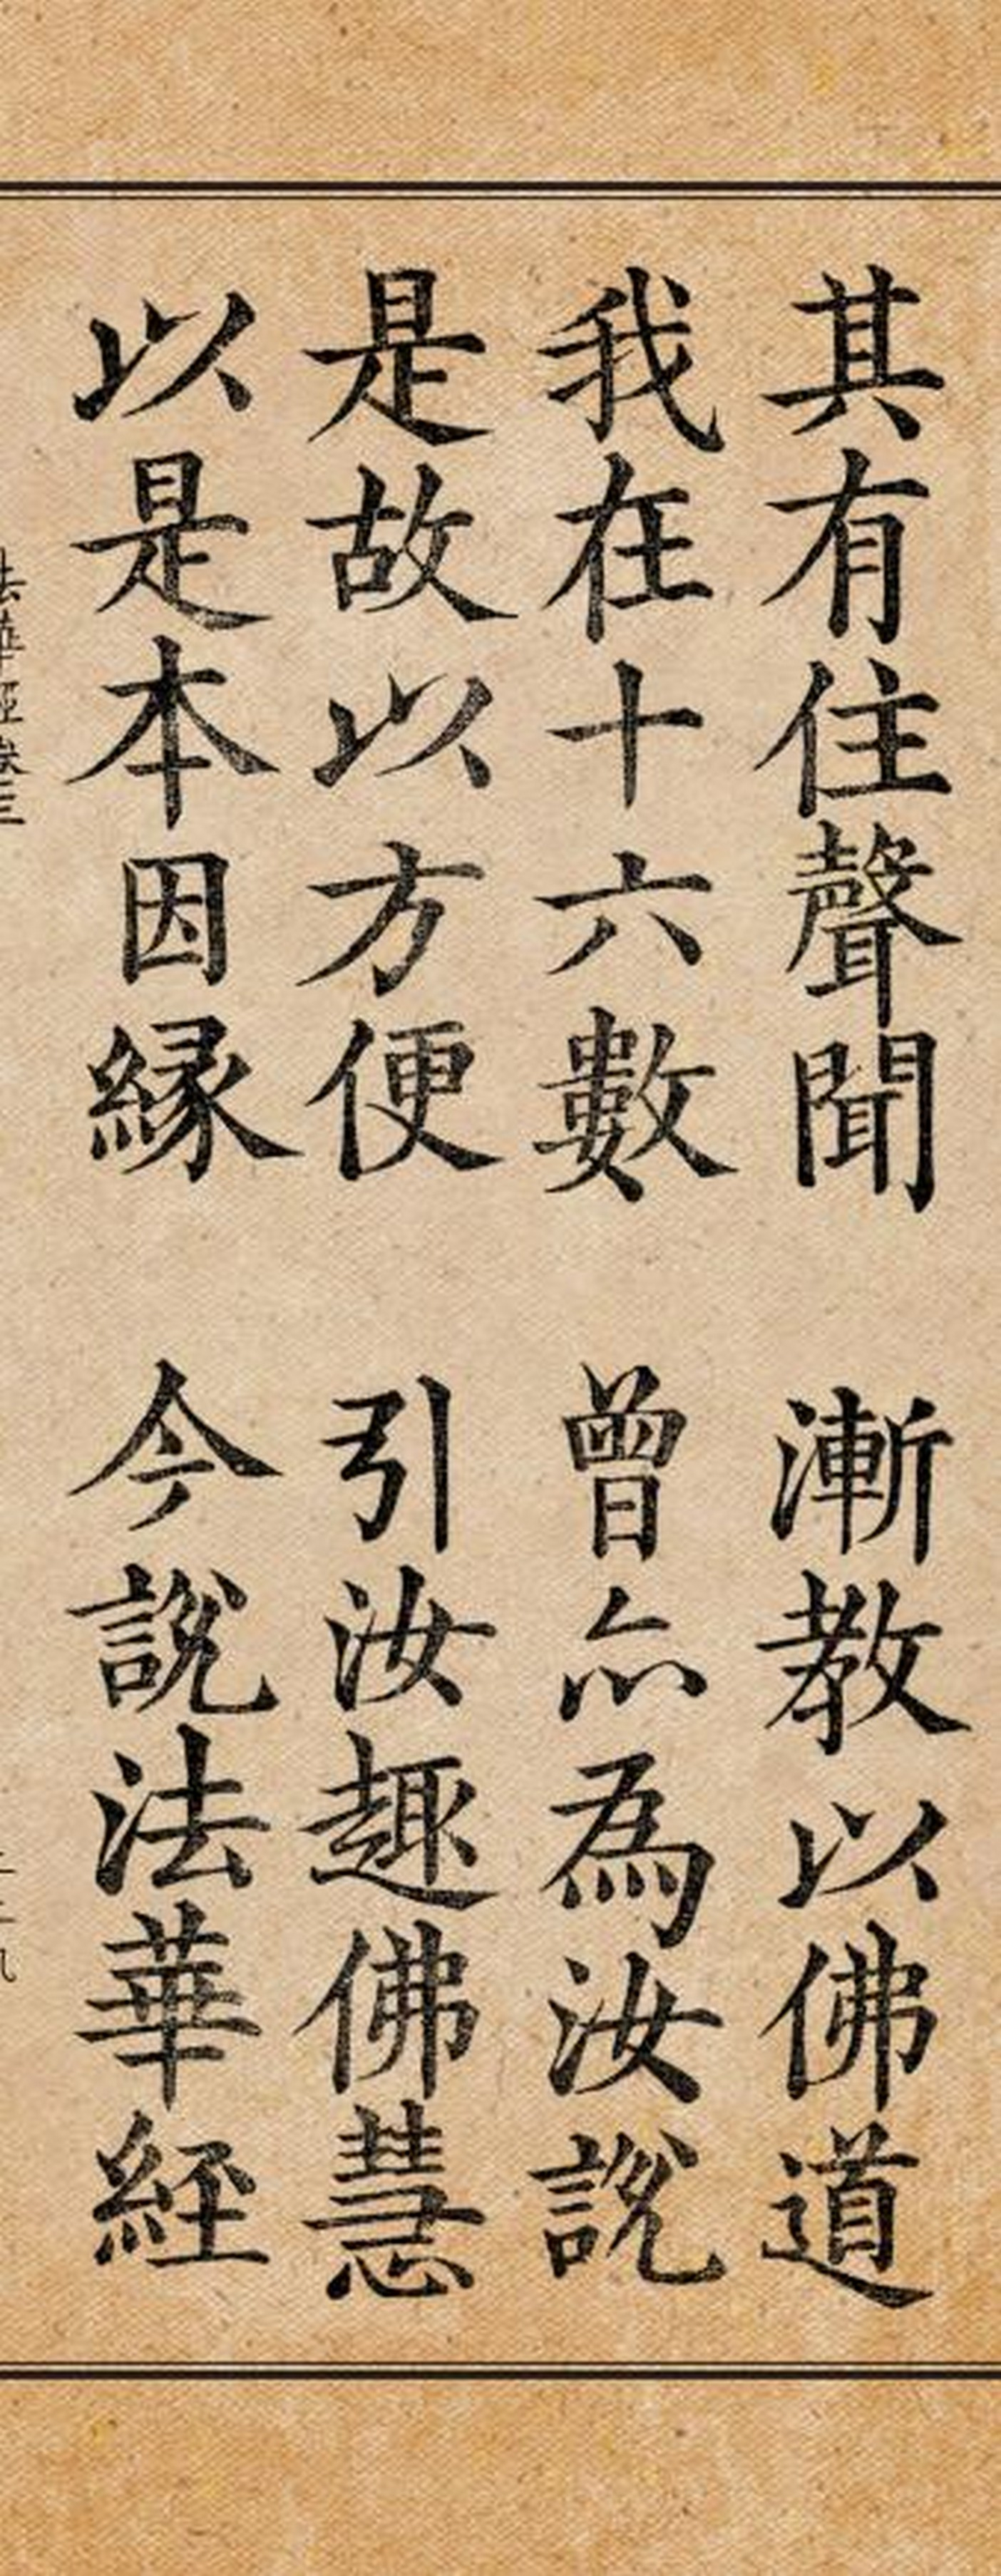 其有住聲聞 漸教以佛道
我在十六數 曾亦為汝說
是故以方便 引汝趣佛慧
以是本因緣 今說法華經
法華經卷三